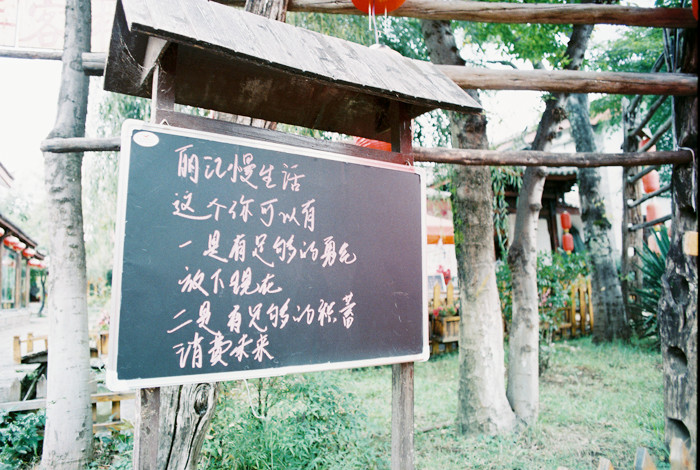 丽江慢生活
这个你可以有
一是有足够的勇气
放下现在
二是有足够的积蓄
消费未来